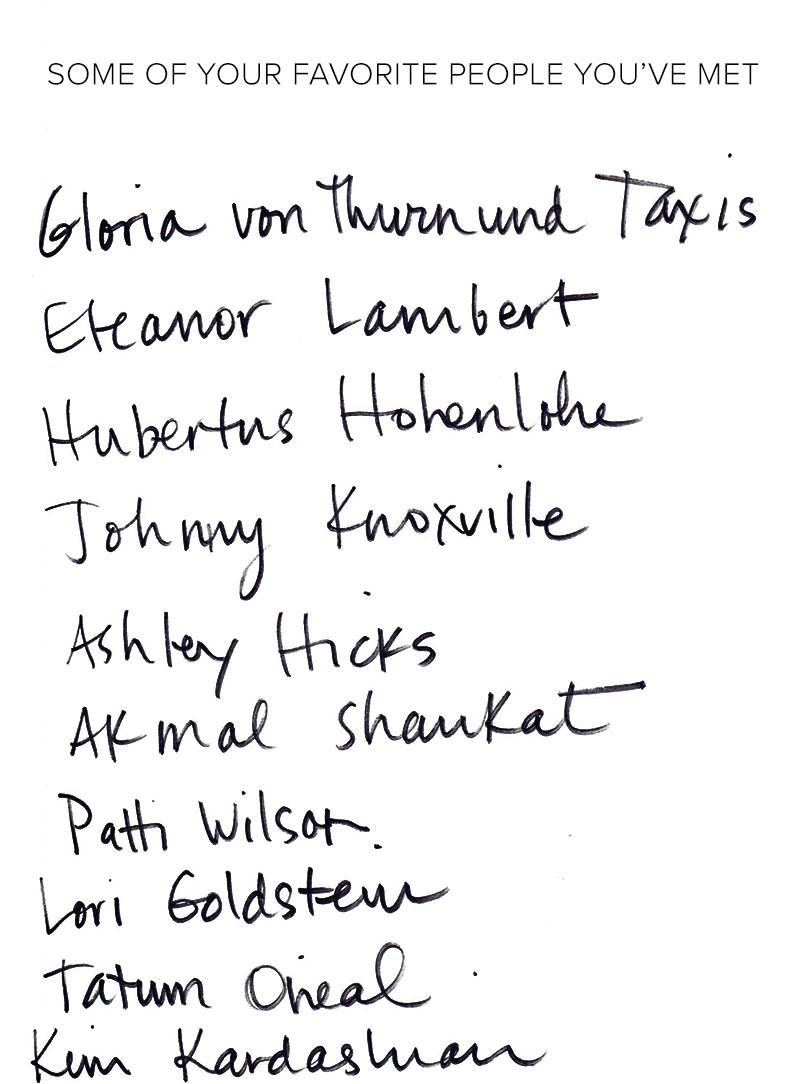 SOME OF YOUR FAVORITE PEOPLE YOU'VE MET
Gloria von Thurn und Taxis
Eleanor Lambert
Hubertus Hohenlohe
Johnny Knoxville
Ashley Hicks
Akmal Shaukat
Patti Wilson.
Lori Goldstein
Tatum Oneal
Kim Kardashian